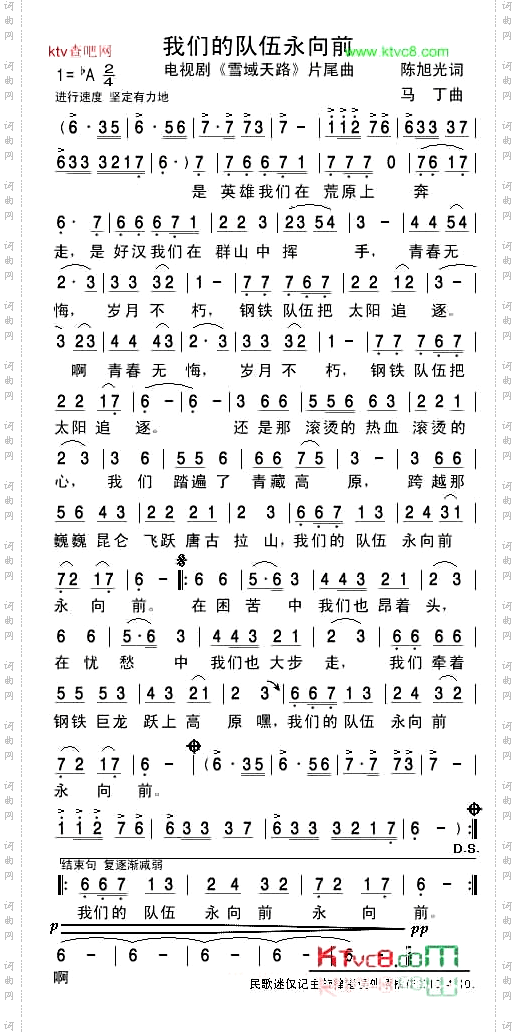 ktv查吧网
我们的队伍永向前
www.ktvc8.com
1=♭A 2/4
电视剧《雪域天路》片尾曲
陈旭光词
进行速度 坚定有力地
马 丁曲
(6· 35 | 6· 56 | 7·7 73 | 7 - | 112 76 | 633 37 |
633 3217 | 6·) 7 | 7 667 61 | 777 0 | 76 17 |
是 英雄我们在 荒原上 奔
6· 7 | 66671 | 2 2 3 | 23 54 | 3 - | 44 54 |
走,是 好汉我们在 群山中 挥 手, 青春无
2· 3 | 33 32 | 1 - | 77 767 | 22 12 | 3 - |
悔, 岁月不 朽, 钢铁 队伍把 太阳 追 逐。
3 23 | 44 43 | 2· 3 | 33 32 | 1 - | 77 767 |
啊 青春 无 悔, 岁月 不 朽, 钢铁 队伍把
22 17 | 6 - | 6 - | 3 66 | 5 5 6 | 1 66 | 5 5 6 |
太阳 追 逐。 还 是那 滚烫的 热血 滚烫的
2 3 | 3 6 | 55 6 | 66 75 | 3 - | 3 66 |
心, 我 们 踏遍了 青藏 高 原, 跨 越那
56 43 | 55 45 | 1 22 | 2 3 | 667 13 | 24 31 |
巍巍 昆仑 飞跃 唐古 拉 山,我们的 队伍 永向前
72 17 | 6 - |: 6 6 | 5·6 3 | 443 21 | 2 2 3 |
永 向 前。 在 困 苦 中 我们也 昂着 头,
6 6 | 5·6 3 | 443 23 | 6 - | 66 66 |
在 忧 愁 中 我们也 大步 走, 我们 牵着
55 13 | 43 21 | 2 3 | 667 13 | 24 32 |
钢铁 巨龙 跃上 高 原 嘿,我们的 队伍 永向 前
72 17 | 6 - | (6· 35 | 6· 56 | 7·7 73 | 7 - |
永 向 前。
112 76 | 633 36 | 633 3217 | 6 - ) :|
D.S.
结束句 复逐渐减弱
|: 667 | 13 | 24 | 32 | 72 | 17 | 6 - :|
我们的 队伍 永向 前 永 向 前。
p pp
6 - | 6 - | 6 - | 6 -
啊
KTvc8.com
民歌迷仅记